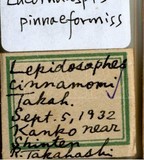 pinnaeformiss
Lepidosaphes
cinnamomi
Takah.
Sept. 5, 1932
Kanko near
Shinten
R. Takahashi